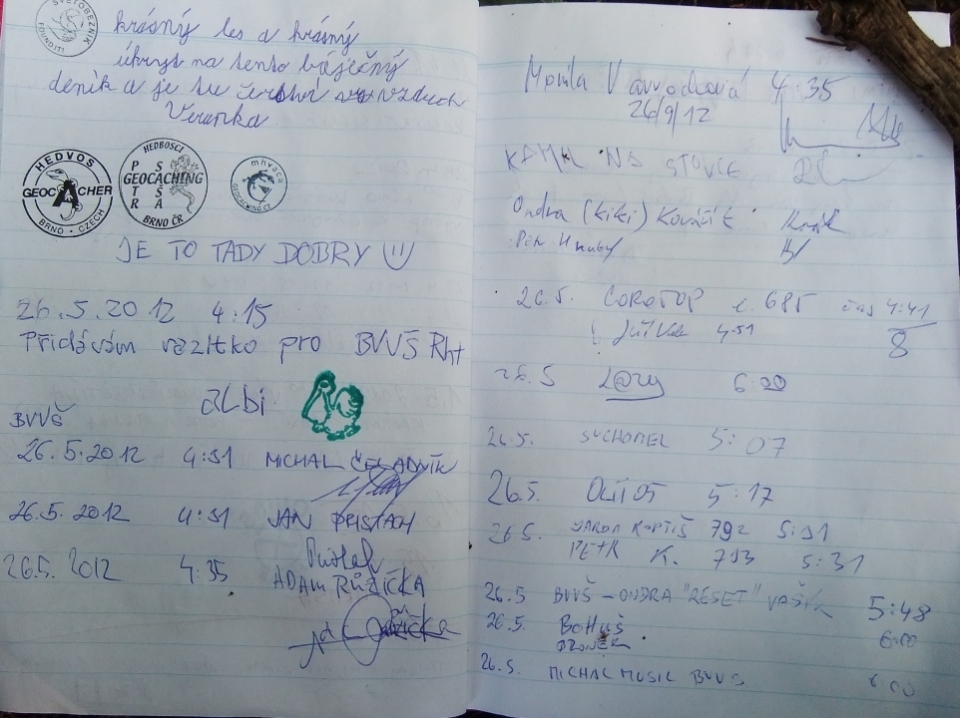 SVĚTOBĚŽNÍK
FOUND IT!
krásný les a krásný
úkryt na tento báječný
deník a je tu
Verunka
HEDVOS
GEOCACHER
BRNO - CZECH
HEDBOSCI
P S
GEOCACHING
T Š
R A
BRNO ČR
mnvaca
GEOCACHING.CZ
JE TO TADY DOBRY
26.5.2012 4:15
Přidávám razítko pro BVVŠ Rht
albi
BVVŠ
26.5.2012 4:51 MICHAL ČELADNÍK
26.5.2012 4:51 JAN PRISTACH
26.5. 2012 4:35 ADAM RŮŽIČKA
Růžička
4:35
26/9/12
KAMIL NA STOVCE
Ondra (kiki) Kovářík
Petr Hruby
26.5. COROTOP č. 685 čas 4:41
4:51 8
26.5 L@zy 6:00
26.5. SUCHOMEL 5:07
26.5. 5:17
26.5. JARDA KOPTIŠ 792 5:31
PETR K. 793 5:31
26.5 BVVŠ - ONDRA "RESET" VAŠÍK 5:48
26.5. BOHUŠ 6:00
26.5. MICHAL MUSIL BVVŠ 6:00